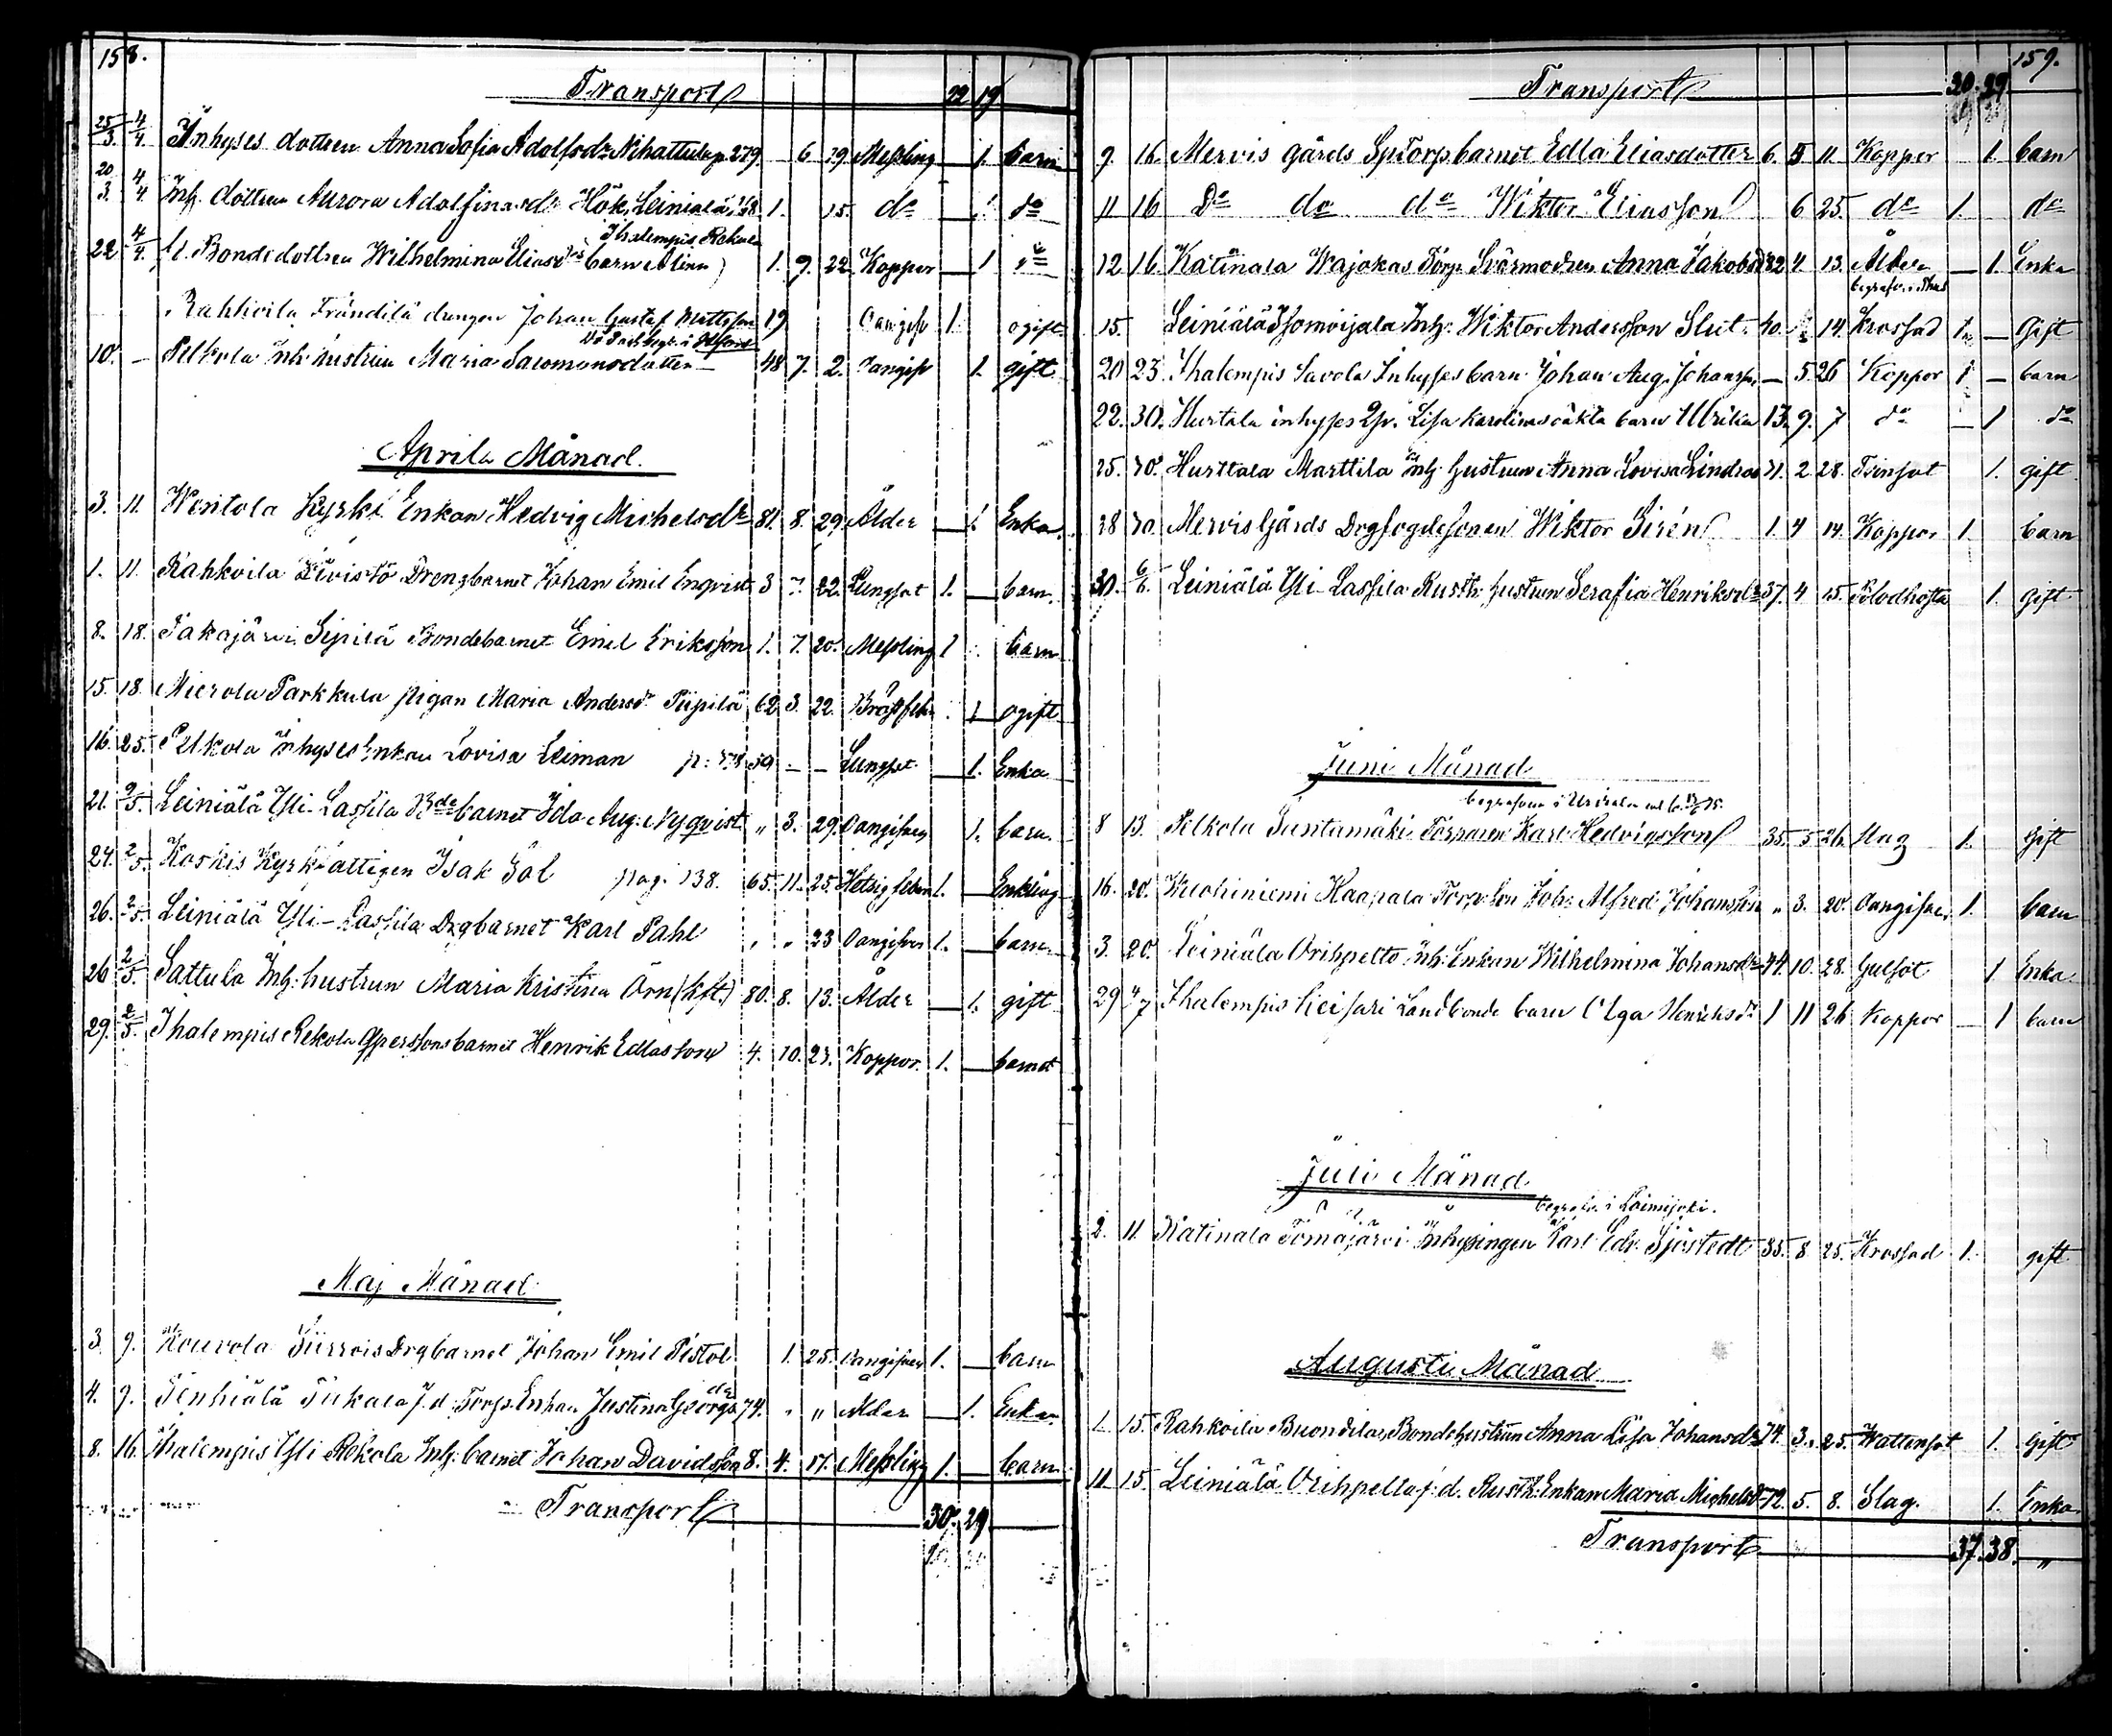 158.
Transport 22 19
25/3. 4/4. Inhyses dottren Anna Sofia Adolfsdr Nihattula p. 279. 6 29. Messling 1. barn
20/3. 4/4. Inh. dottren Aurora Adolfina dr Höh, Leiniälä, 1. 15. do 1. do
Ihalempis Rekola
22 4/4. Bondedottren Wilhelmina Eliasdrs barn Alina 1. 9. 22. Koppor 1 do
Rahkoila Frändilä drängen Johan Gustaf Mattsson 19 Oangifv 1. ogift
10. — Pelkola Inh. hustrun Maria Salomonsdotter 48 7. 2. Oangifv 1. gift
Aprils Månad.
3. 11. Wentola Kyrki Enkan Hedvig Michelsdr 81. 8. 29. Ålder — 1 Enka
1. 11. Rahkoila Drengbarnet Johan Emil Enqvist 3 7. 22. Lungsot 1. — barn
8. 18. Takajärvi Sipilä Bondebarnet Emil Eriksson 1. 7. 20. Messling 1 barn
15. 18. Mierola Parkkula pigan Maria Andersdr Piipilä 62 3. 22. Bröstfeber 1 ogift
16. 25. Pelkola Inhyses Enkan Lovisa Leiman 59 — — Lungsot — 1. Enka
21. 2/5. Leiniälä Yli-Lassila Bde barnet Ida Aug. Nyqvist „ 3. 29. Oangifven 1. barn.
24. 2/5. Koskis Kyrkfattigen Isak Sal pag. 138. 65. 11. 25. Hetsigfeber 1. — Enkling
26. 2/5. Leiniälä Yli-Lassila Drgbarnet Karl Pahl „ „ 23 Oangifven 1. — barn
26 2/5. Sattula Inh. hustrun Maria Kristina Örn (kft.) 80. 8. 13. Ålder — 1. gift
29. 2/5. Ihalempis Rekola Qpersonsbarnet Henrik Edlasson 4. 10. 23. Koppor. 1. — barnet
Maj Månad.
3. 9. Kouvola Drgbarnet Johan Emil Pistol 1. 25. Oangifven 1. — barn
4. 9. Tenhiälä Tiikala f.d. Torp. Enkan Justina Georgsdr 74. „ „ Ålder — 1. Enka
8. 16. Ihalempis Yli Rekola Inh. barnet Johan Davidsson 8. 4. 17. Messling 1. — barn
Transport 30. 29
159.
Transport 30. 29
9. 16. Mervis gårds SpTorp. barnet Edla Eliasdotter 6. 5 11. Koppor 1. barn
11 16 Do do do Wiktor Eliasson 6 25. do 1. do
12 16. Katinala Wajokas Torp. Svärmodren Anna Jakobsd 82 4. 13. Ålder — 1. Enka
15. Leiniälä Isomoijala Inh. Wiktor Andersson Slut. 40. 14. Krossad 1. — Gift
20 23. Ihalempis Savola Inhyses barn Johan Aug. Johansson — 5 26 Koppor 1 — barn
22. 30. Hurtala inhyses Qp. Lisa Karolinas oäkta barn Ulrika 13. 9. 7 do — 1 do
25. 30. Hurttala Marttila Inh. hustrun Anna Lovisa Lindroos 31. 2 28. 1. gift
28 30. Mervis Gårds Drgfogdesonen Wiktor Sirén 1. 4 14. Koppor 1. barn
30. 6/6. Leiniälä Yli-Lassila Rusth. hustrun Serafia Henriksdr 37. 4 15. Blodhosta 1. Gift
Juni Månad
begrafven i Urjala
8 13. Pelkola Suntamäki Torparen Karl Hedvigsson 35. 5 26. Slag 1. Gift
16. 20. Kuohiniemi Haapala Torp. Son Joh. Alfred Johansson „ 3. 20. Oangifven 1. barn
3. 20. Leiniälä Orihpelto Inh. Enkan Wilhelmina Johansdr 44. 10. 28. Gulsot 1 Enka
29 4/7 Ihalempis Keisari Landbonde barn Olga Henriksdr 1 11 26 Koppor — 1 barn
Juli Månad
begrafv. i Loimijoki.
2. 11. Katinala Tömäjärvi Inhysingen Karl Edv. Sjöstedt 35. 8 25. Krossad 1. gift
Augusti Månad
1. 15. Rahkoila Bondehustrun Anna Lisa Johansdr 74. 3. 25. Wattensot 1. Gift
11 15. Leiniälä Orihpelto f.d. Rusth. Enkan Maria Michelsdr 72. 5. 8. Slag. 1. Enka
Transport 37. 38. „